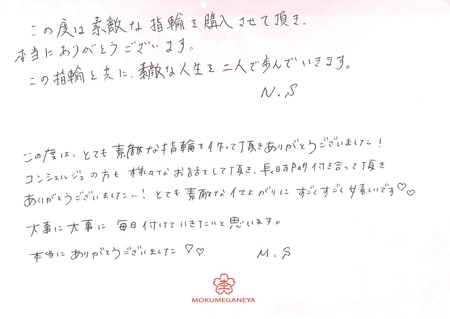 この度は素敵な指輪を購入させて頂き、
本当にありがとうございます。
この指輪と共に、素敵な人生を二人で歩んでいきます。
N.S
この度は、とても素敵な指輪を作って頂きありがとうございました!
コンシェルジュの方も様々なお話をして頂き、長時間付き合って頂き
ありがとうございましたー!とても素敵な仕上がりにすごくすごく嬉しいです♡♡
大事に大事に毎日付けていきたいと思います。
本当にありがとうございました♡♡
M.S
MOKUMEGANEYA